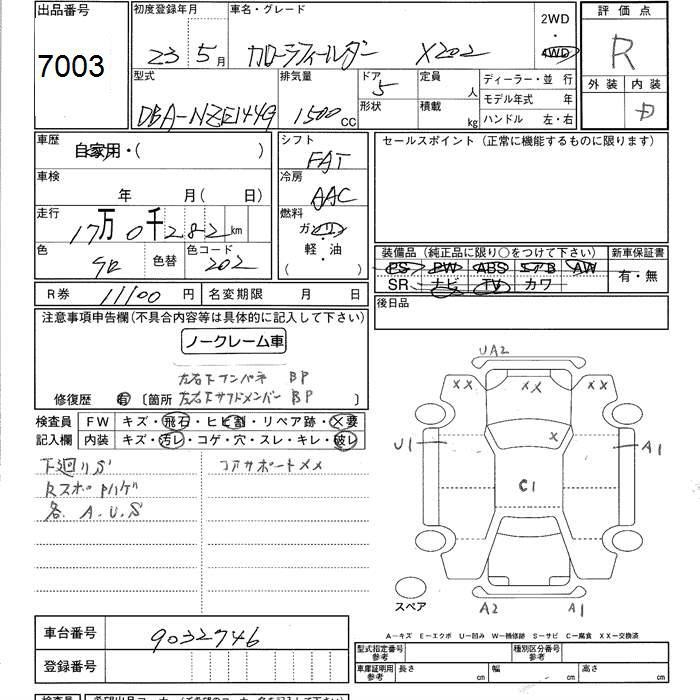 出品番号 初度登録年月 車名・グレード 2WD・4WD 評価点
7003 23 5月 カローラフィールダー X202 R
型式 排気量 ドア 定員 人 ディーラー・並 行 外装 内装
DBA-NZE144G 1500 CC 5 形状 積載 kg モデル年式 年
ハンドル 左・右
車歴 自家用・( ) シフト FAT セールスポイント (正常に機能するものに限ります)
車検 年 月( 日) 冷房 AAC
走行 17万0千282km 燃料 ガソリン
軽・油
( )
色 色替 色コード 202
装備品 (純正品に限り○をつけて下さい) 新車保証書
PS PW ABS エアB AW 有・無
SR ナビ TV カワ
R券 11100 円 名変期限 月 日 後日品
注意事項申告欄(不具合内容等は具体的に記入して下さい)
ノークレーム車
BP
修復歴 有 [箇所 左右下サフドメンバー BP ]
検査員 FW キズ・飛石・ヒビ割・リペア跡・X要
記入欄 内装 キズ・汚レ・コゲ・穴・スレ・キレ・破レ
下廻リS コアサポートメメ
各 A.U.S
UA2
XX XX XX
X
U1 A1
C1
スペア A2 A1
A―キズ E―エクボ U―凹み W―補修跡 S―サビ C―腐食 XX―交換済
車台番号 9032746
型式指定番号 参考 種別区分番号 参考
登録番号
車庫証明用 参考 長さ cm 幅 cm 高さ cm